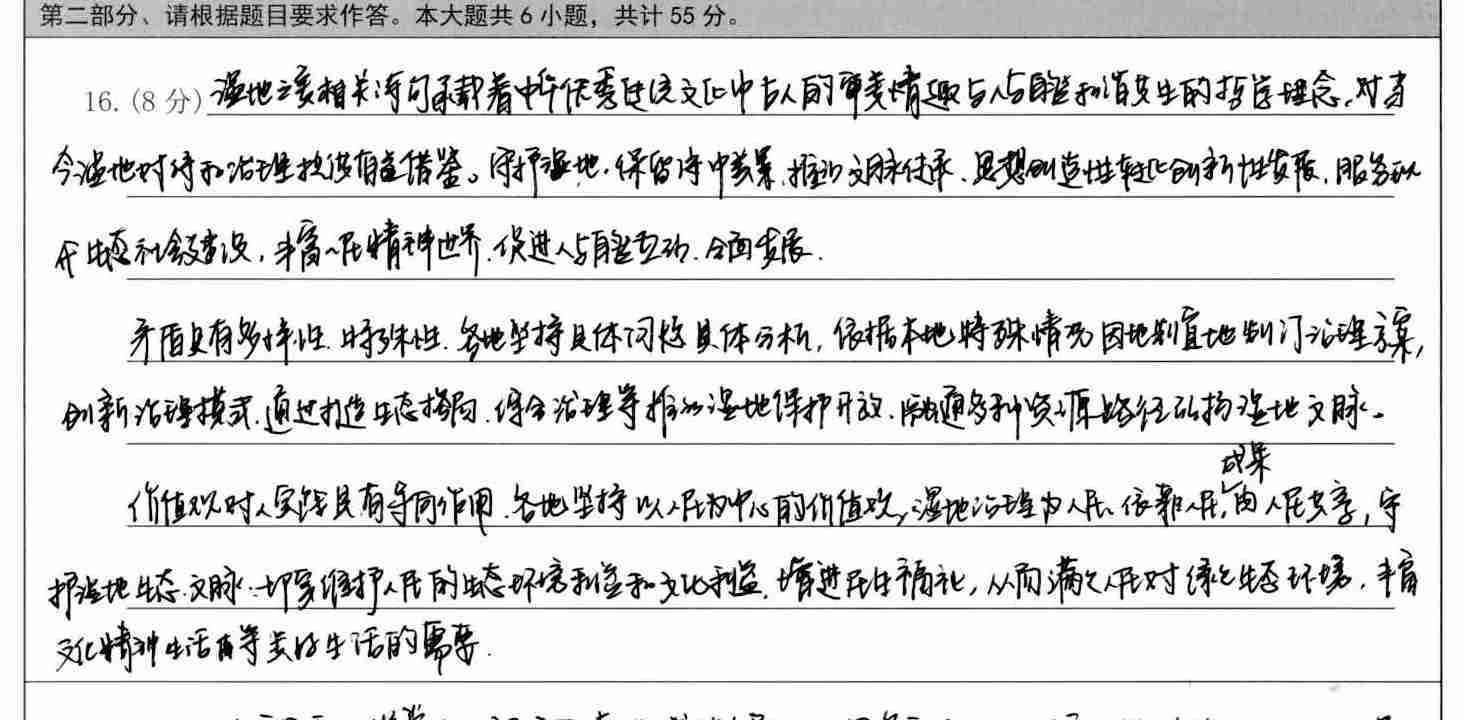 第二部分、请根据题目要求作答。本大题共 6 小题，共计 55 分。
16. (8 分) 湿地主要相关诗句承载着中华优秀传统文化中古人的审美情趣与人与自然和谐共生的哲学理念,对当
今湿地对待和治理提供有益借鉴。守护湿地,保留诗中美景,推动文脉传承、思想创造性转化创新性发展,服务现
代生态社会建设,丰富人民精神世界,促进人与自然互动、全面发展.
矛盾具有多样性、特殊性.各地坚持具体问题具体分析,依据本地特殊情况因地制宜地制订治理方案,
创新治理模式,通过打造生态格局、综合治理等推动湿地保护开放,融通多种资源路径而构湿地文脉。
成果
价值观对人实践具有导向作用.各地坚持以人民为中心的价值观,湿地治理为人民、依靠人民,由人民共享,守
护湿地生态、文脉,切实维护人民的生态环境利益和文化利益,增进民生福祉,从而满足人民对绿色生态环境,丰富
文化精神生活等美好生活的需要.